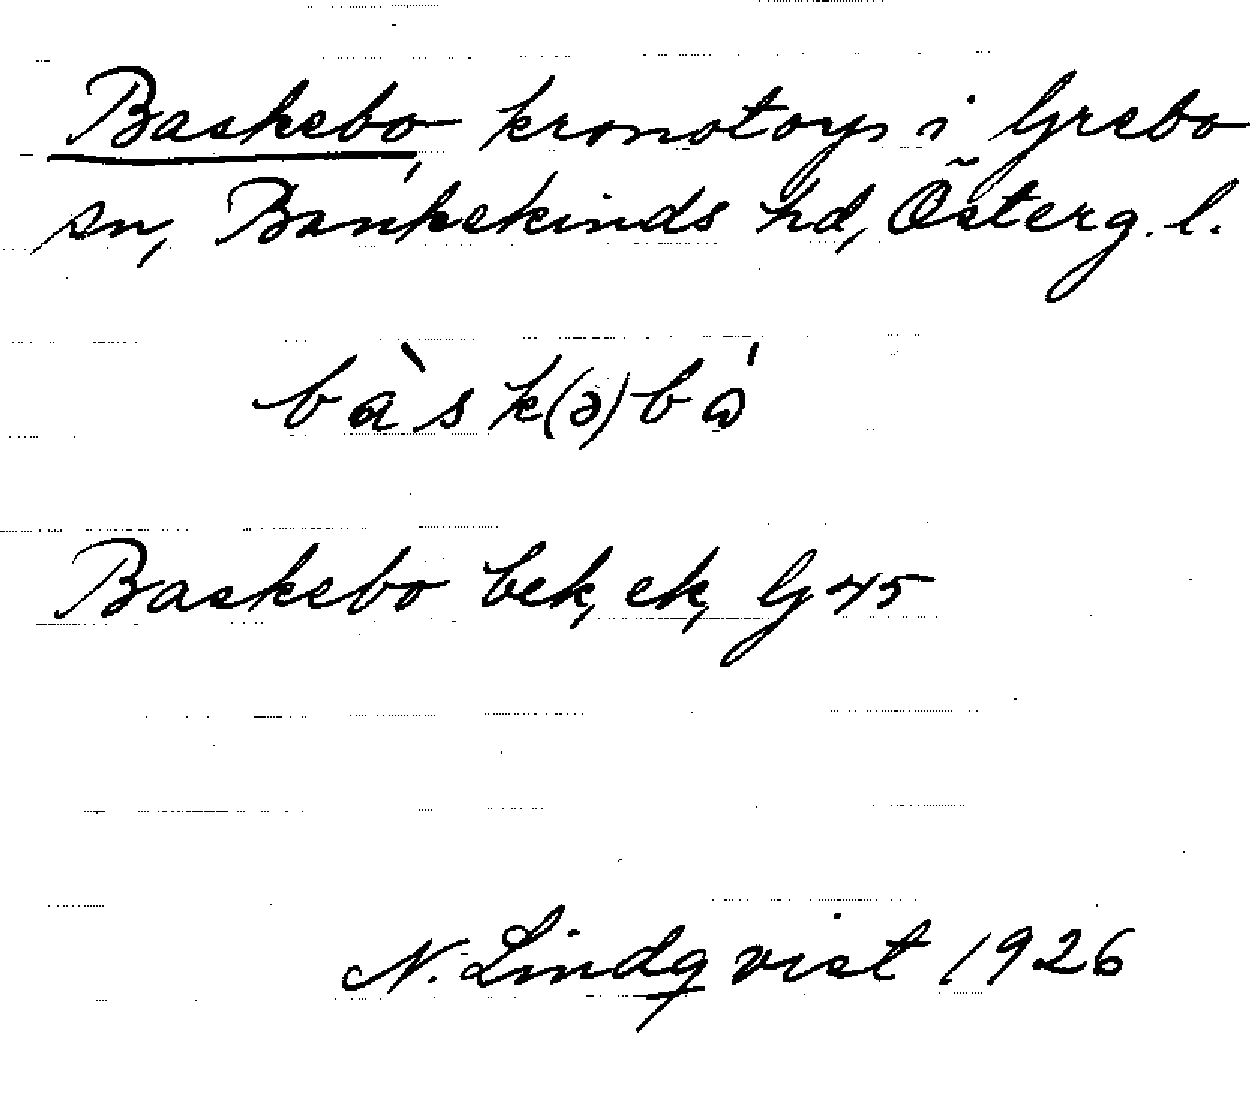 Baskebo, kronotorp i Grebo
sn, Bankekinds hd, Österg. l.
bàsk(ə)bó
Baskebo bek, ek, G 45
N. Lindqvist 1926